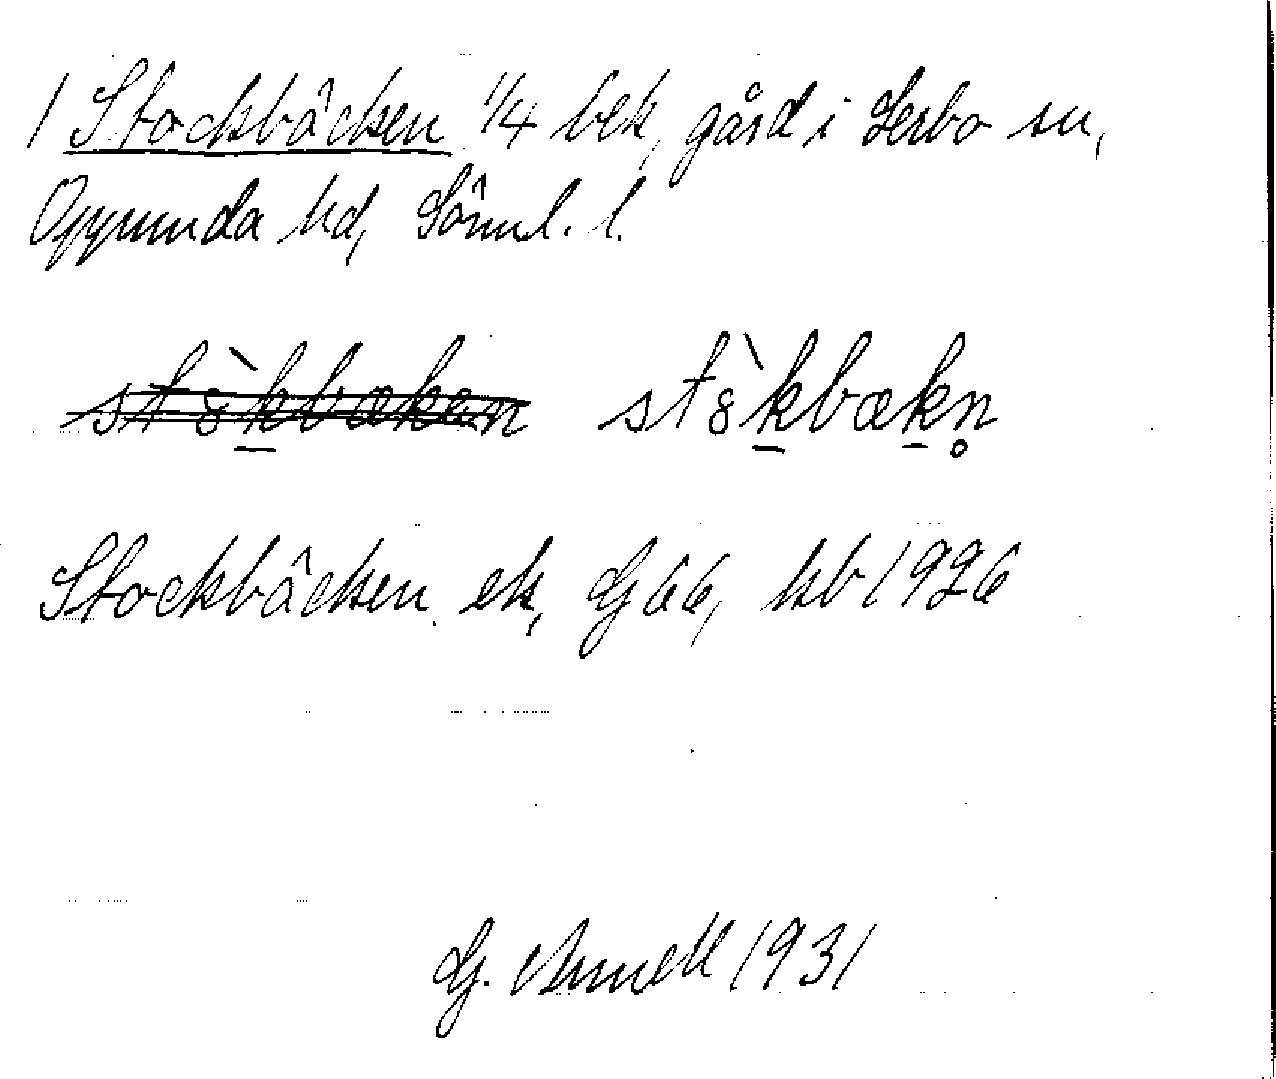 1 Stockbäcken 1/4 bek, gård i Lerbo sn,
Oppunda hd, Söml. l.
st8̀kbæken st8̀k̠bæk̠n̥
Stockbäcken ek, G 66, kb 1926
G. Arnell 1931